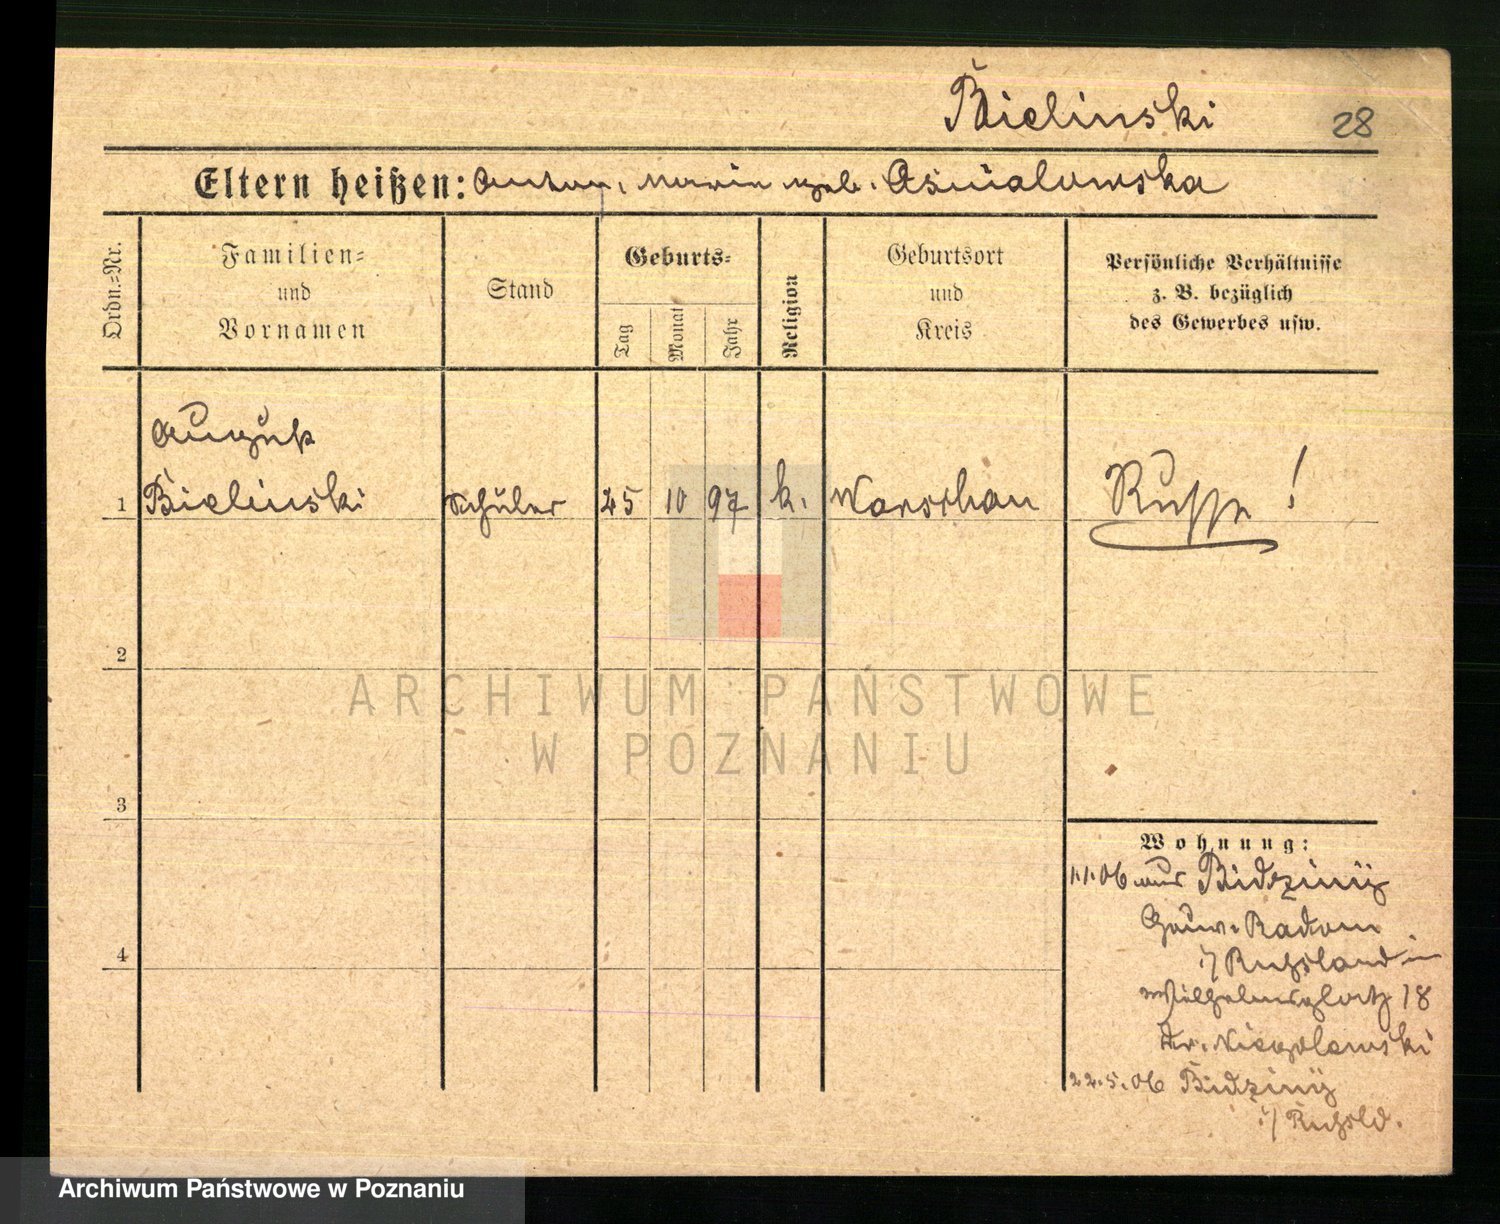 Bielinski
28
Eltern heißen: Anton, Maria geb. Asnialowska
Ordn.-Nr.
Familien-
und
Vornamen
Stand
Geburts-
Tag
Monat
Jahr
Religion
Geburtsort
und
Kreis
Persönliche Verhältnisse
z. B. bezüglich
des Gewerbes usw.
August
1 Bielinski Schüler 25 10 97 k. Warschau Russe!
2
3
4
Wohnung:
1.1.06 aus Bidziny
Gouv. Radom
i/ Russland in
Wilhelmsplatz 18
Dr. Niegolewski
22.5.06 Bidziny
i/ Russld.
ARCHIWUM PAŃSTWOWE
W POZNANIU
Archiwum Państwowe w Poznaniu